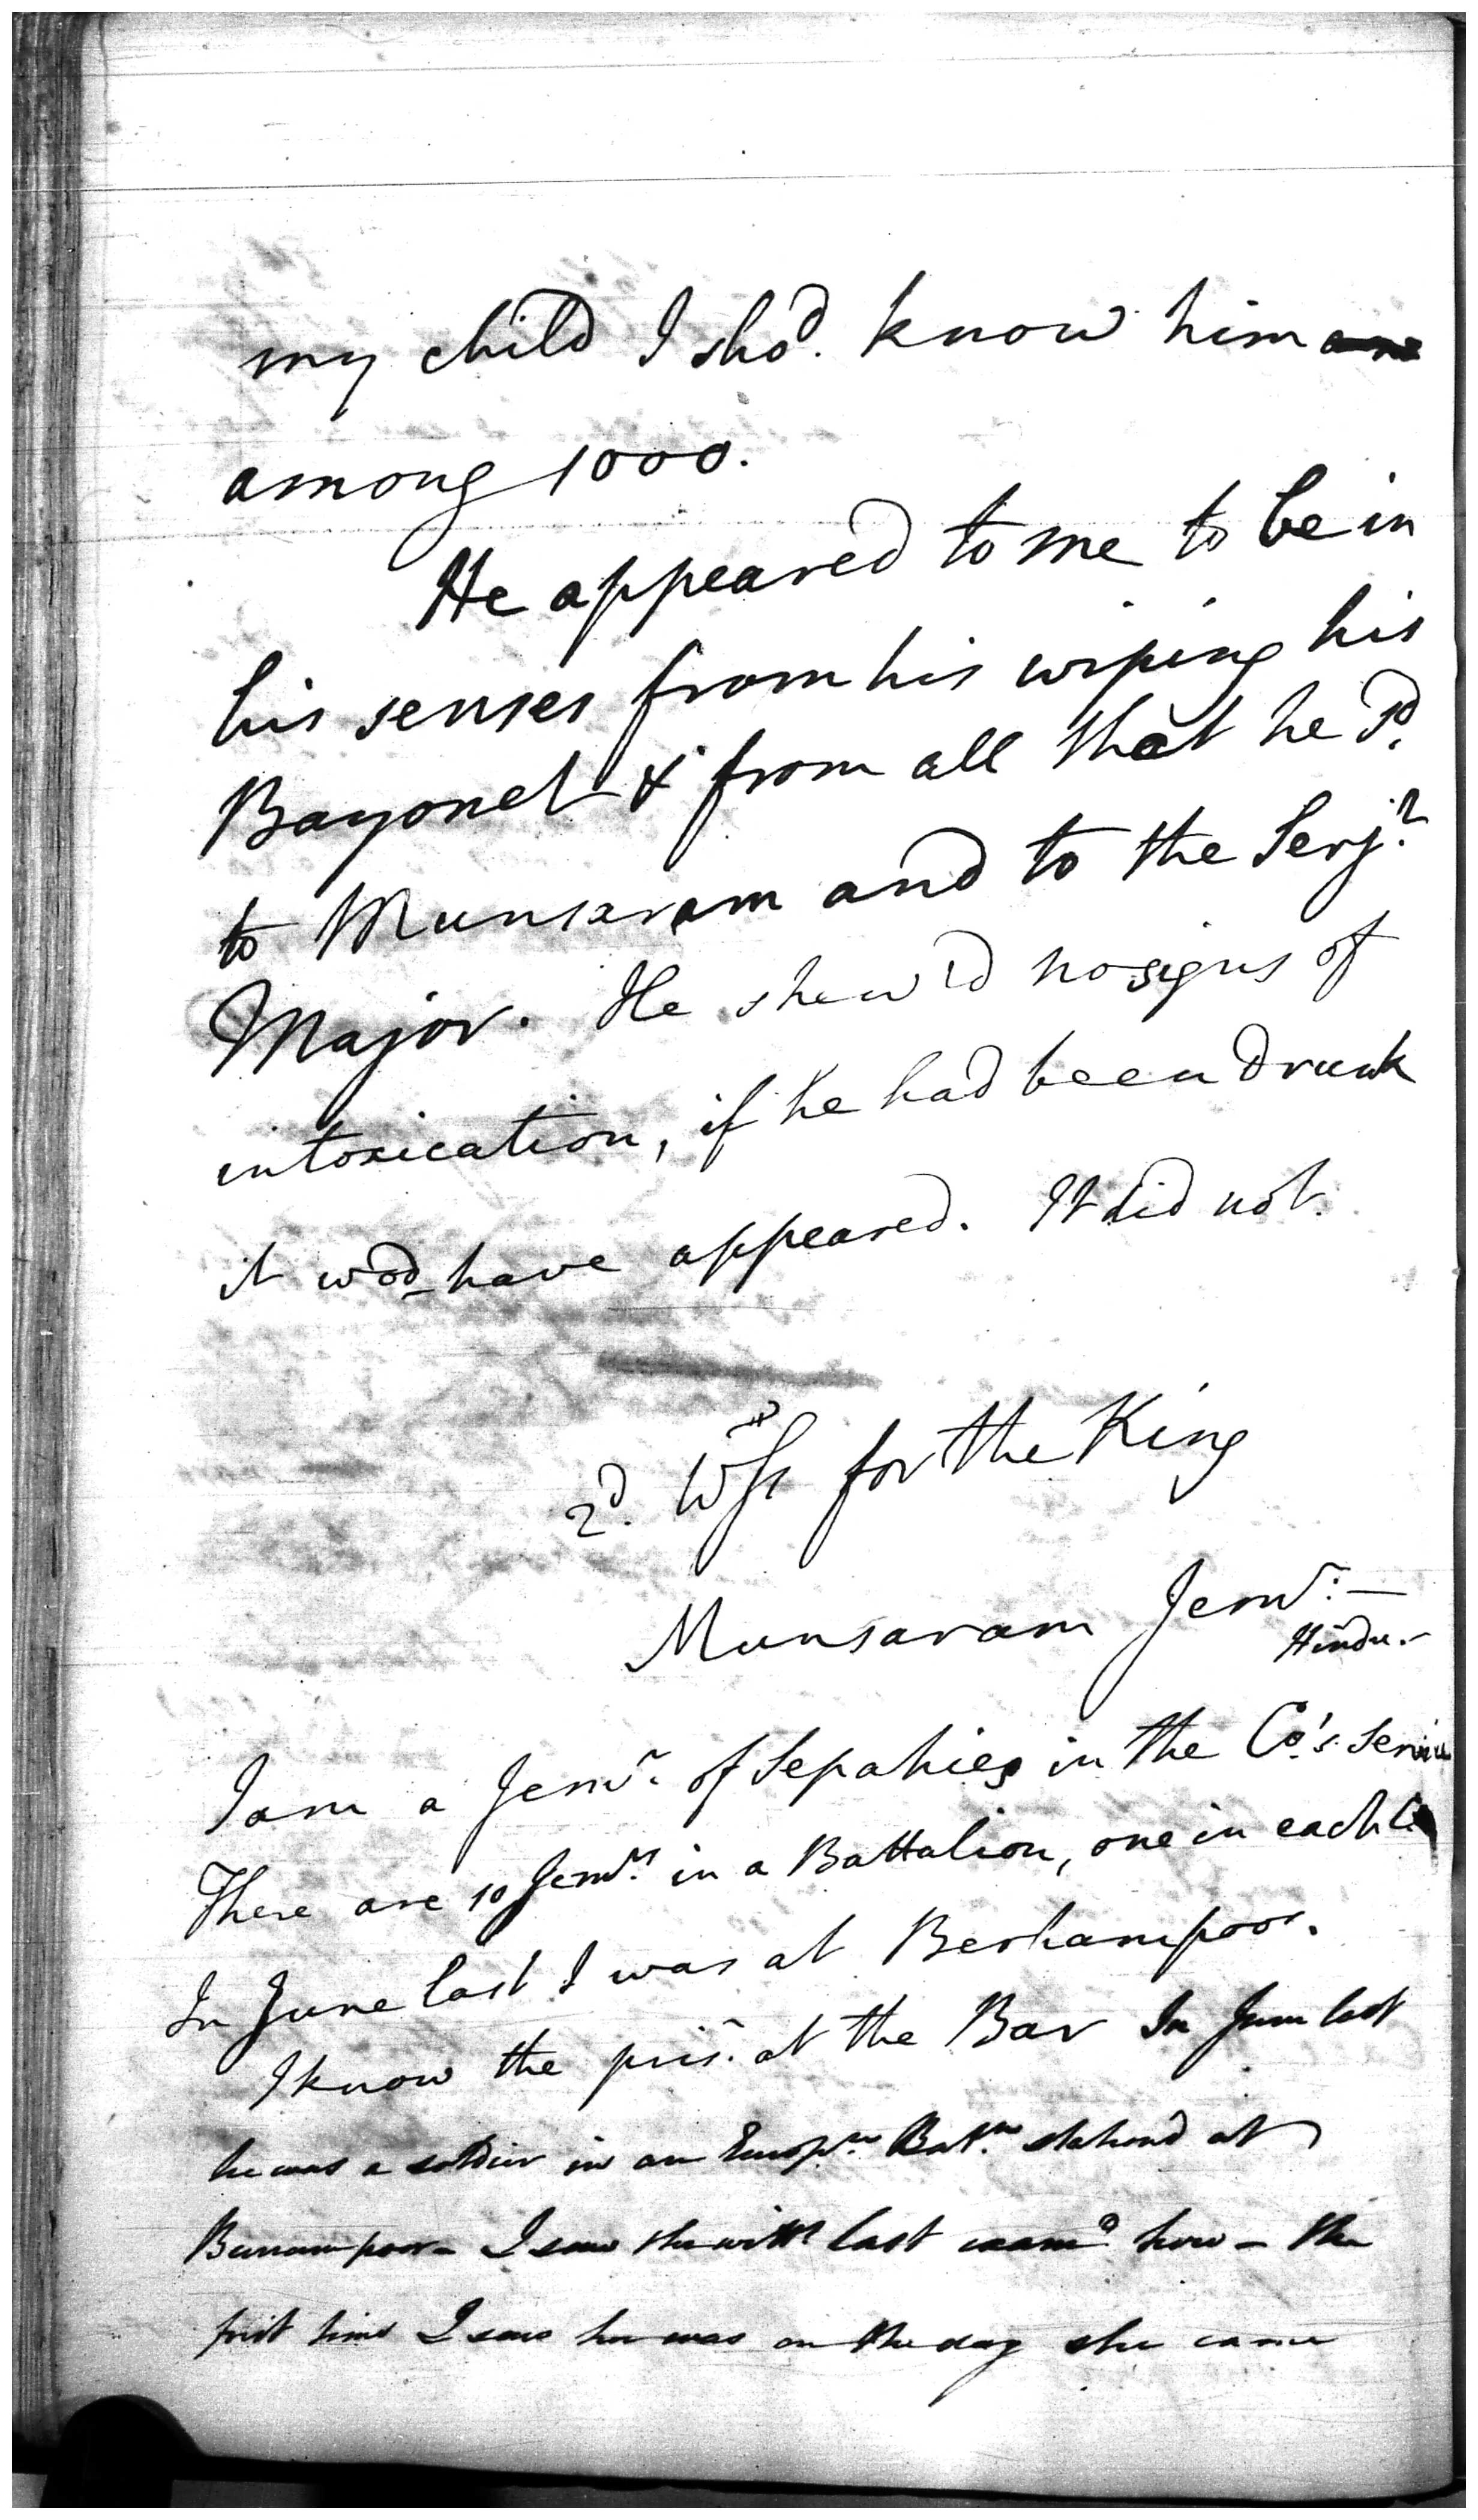 my child I shod. know him
among 1000.
He appeared to me to be in
his senses from his wiping his
Bayonet & from all that he sd.
to Munsaram and to the Serjt.
Major. He shew'd no signs of
intoxication, if he had been drunk
it wod have appeared. It did not.
2d. Wss for the King
Munsaram Jemr. —
Hindu. -
I am a Jemr. of Sepahies in the Co's. Service
There are 10 Jemrs. in a Battalion, one in each Co
In June last I was at Berhampoor.
I know the prisr. at the Bar In June last
he was a soldier in an Europn. Batn. stationd at
Burrampoor - I saw the witss last examd here - the
first time I saw her was on the day she came